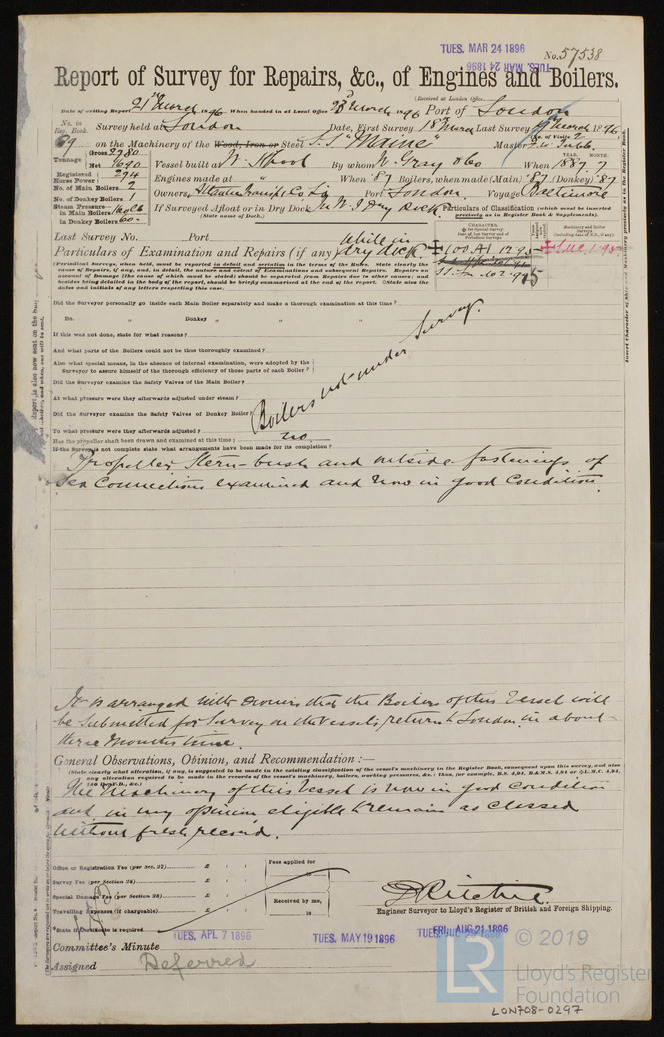 TUES. MAR 24 1896
No. 57538
TUES. MAR 24 1896
Report of Survey for Repairs, &c., of Engines and Boilers.
(Received at London Office
Date of writing Report 21st March 1896 When handed in at Local Office 23 March 1896 Port of London
No. in Reg. Book. Survey held at London Date, First Survey 18 March Last Survey 19 March 1896
89 on the Machinery of the Wood, Iron or Steel S.S. "Maine" No. of Visits 2 Master
Tonnage Gross 2780 Net 1690 Vessel built at W. Hpool By whom W. Gray & Co When 1887 . 7
YEAR. MONTH.
Registered Horse Power 294 Engines made at " When '87 Boilers, when made (Main) '87 (Donkey) '87
No. of Main Boilers 2
No. of Donkey Boilers 1 Owners, Atlantic Transpt Co Ld Port London Voyage Baltimore
Steam Pressure in Main Boilers 160 lb If Surveyed Afloat or in Dry Dock W. I Dry Dock
in Donkey Boilers 60
(State name of Dock.)
Particulars of Classification (which must be inserted precisely as in Register Book & Supplements).
Last Survey No. Port
CHARACTER.
Machinery and Boiler Surveys
Particulars of Examination and Repairs (if any) while in dry dock.
100 A1 12.
LMC 1.95
Periodical Surveys, when held, must be reported in detail and seriatim in the terms of the Rules. State clearly the cause of Repairs, if any, and, in detail, the nature and extent of Examinations and subsequent Repairs. Repairs on account of Damage (the cause of which must be stated) should be separated from Repairs due to other causes; and besides being detailed in the body of the report, should be briefly summarised at the end of the report. State also the dates and initials of any letters respecting this case.
Did the Surveyor personally go inside each Main Boiler separately and make a thorough examination at this time?
Do. " Donkey " " "
If this was not done, state for what reasons?
And what parts of the Boilers could not be thus thoroughly examined?
Also what special means, in the absence of internal examination, were adopted by the Surveyor to assure himself of the thorough efficiency of those parts of each Boiler?
Did the Surveyor examine the Safety Valves of the Main Boiler?
At what pressure were they afterwards adjusted under steam?
Did the Surveyor examine the Safety Valves of Donkey Boiler?
To what pressure were they afterwards adjusted?
Boilers not under Survey.
Has the propeller shaft been drawn and examined at this time? no
If the Survey is not complete state what arrangements have been made for its completion?
Propeller, Stern-bush and outside fastenings of
Sea Connections examined and now in good Condition.
It is arranged with Owners that the Boilers of this Vessel will
be Submitted for Survey on the vessel's return to London in about
three months time.
General Observations, Opinion, and Recommendation:—
(State clearly what alteration, if any, is suggested to be made in the existing classification of the vessel's machinery in the Register Book, consequent upon this survey, and also any alteration required to be made in the records of the vessel's machinery, boilers, working pressures, &c.: thus, for example, B.S. 4,94, B.&M.S. 4,94 or L.M.C. 4,94,
The Machinery of this Vessel is now in good Condition
and in my opinion eligible to remain as Classed
without fresh record.
Office or Registration Fee (per Sec. 27) £ : : Fees applied for
Survey Fee (per Section 28) £ : : 18
Special Damage Fee (per Section 28) £ : : Received by me,
Travelling Expenses (if chargeable) £ : : 18
State if Certificate is required
D Ritchie
Engineer Surveyor to Lloyd's Register of British and Foreign Shipping.
Committee's Minute TUES. APL 7 1896 TUES. MAY 19 1896 FRI. AUG 21 1896
Assigned Deferred
© 2019
LR
Lloyd's Register
Foundation
LON708-0297